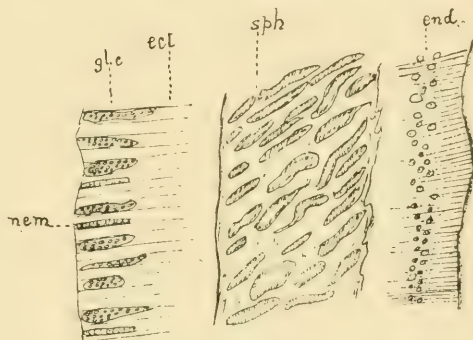 glc ect sph end.
nem.